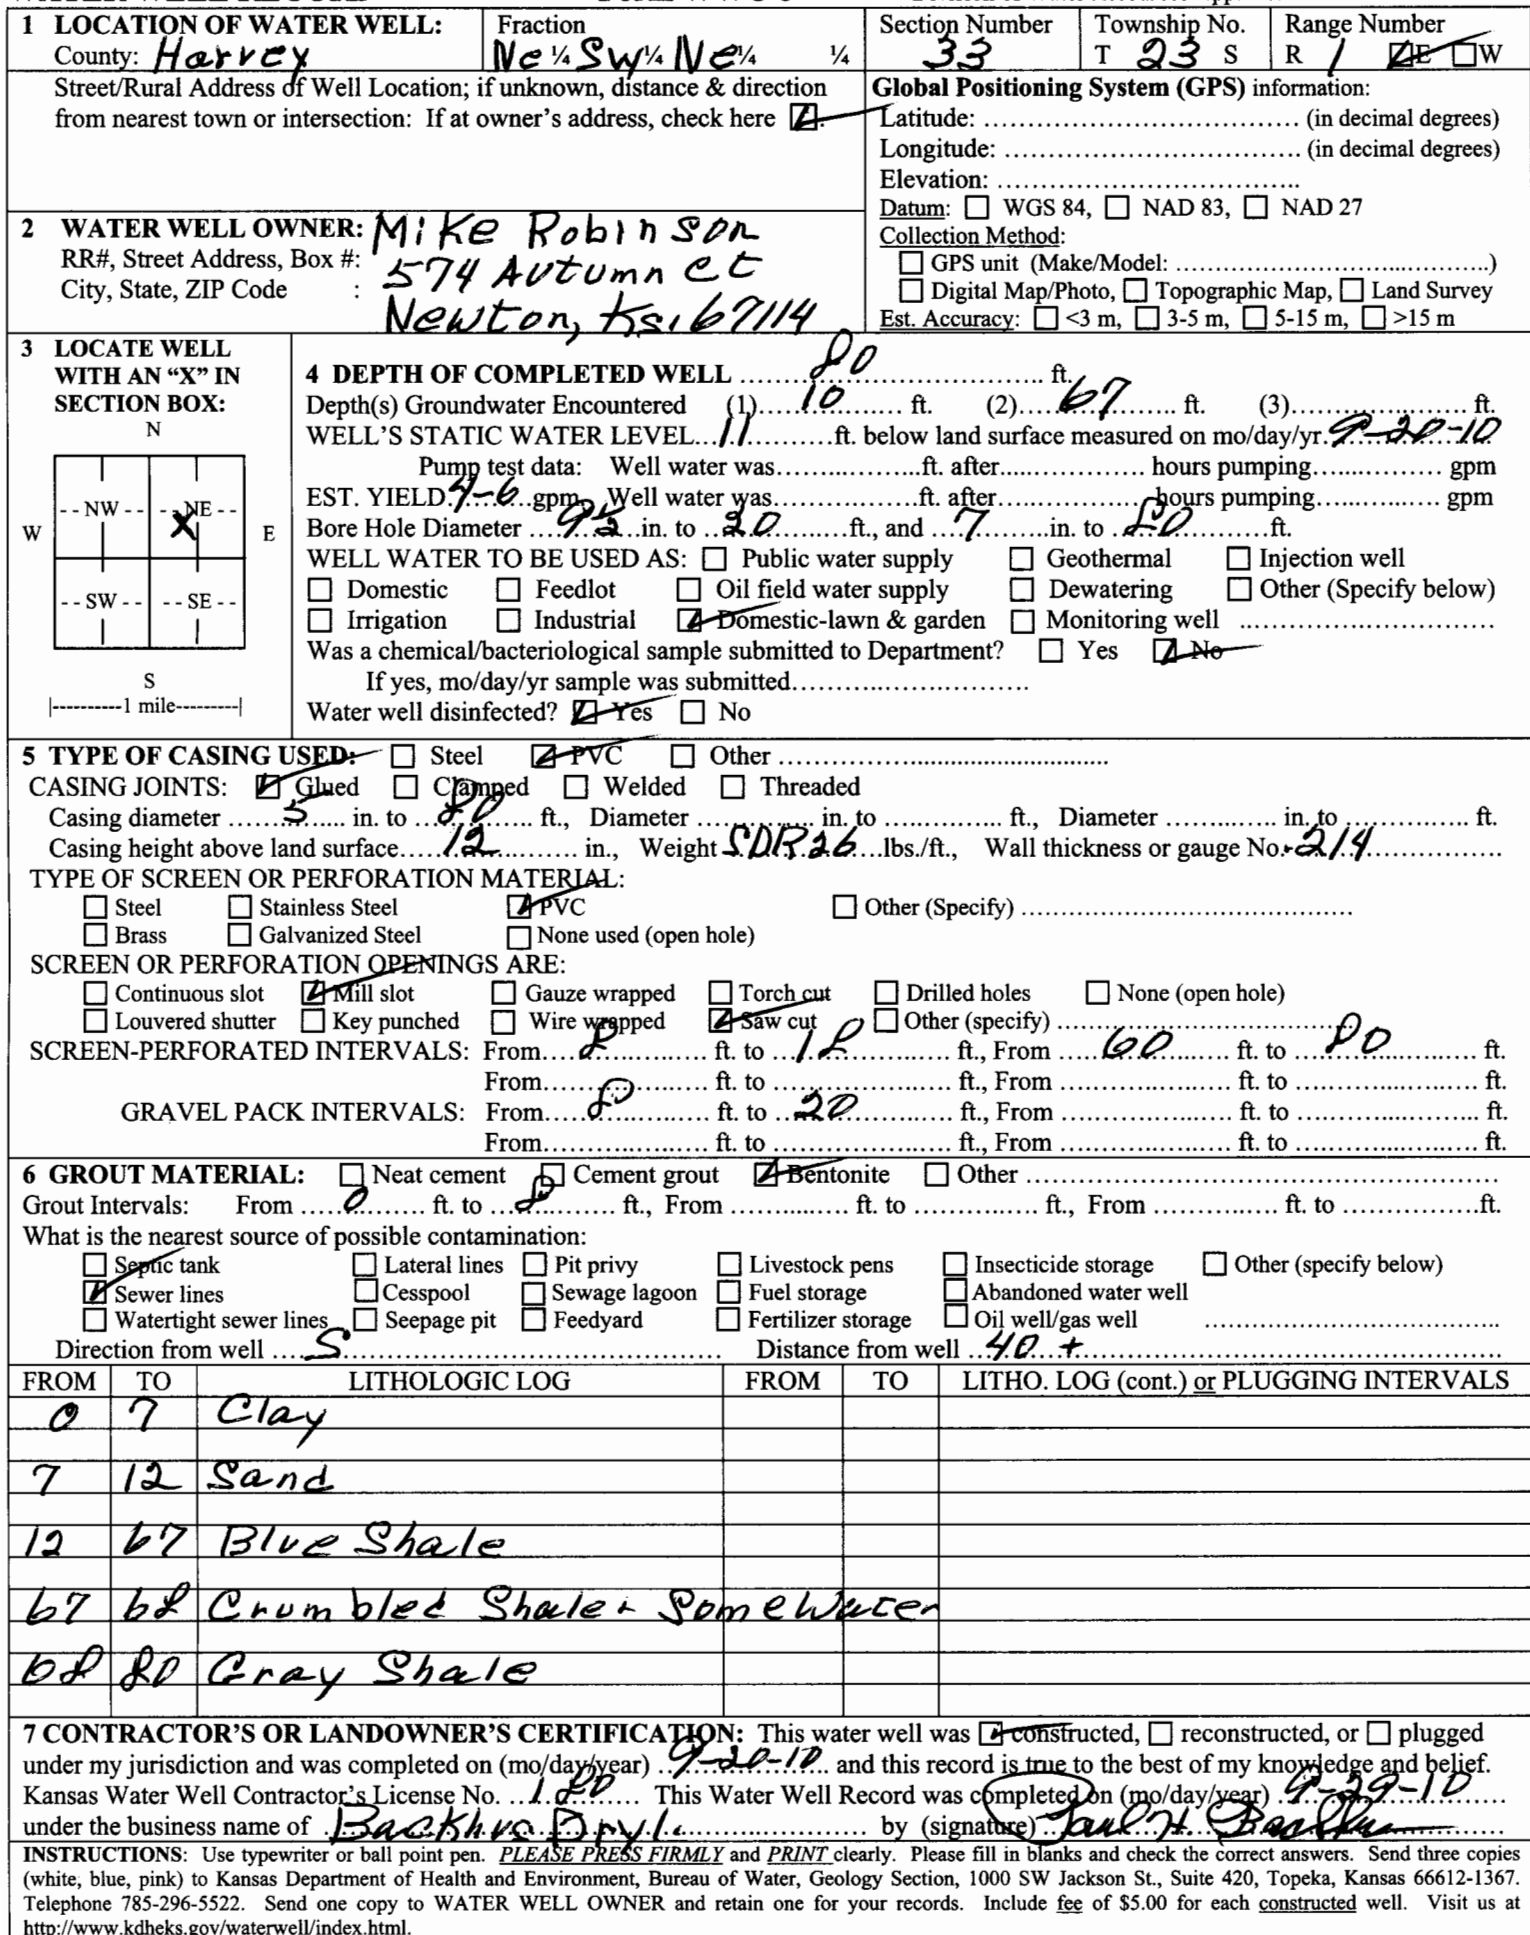 1 LOCATION OF WATER WELL: Fraction Section Number Township No. Range Number
County: Harvey Ne ¼ Sw ¼ Ne ¼ ¼ 33 T 23 S R 1 E W
Street/Rural Address of Well Location; if unknown, distance & direction
from nearest town or intersection: If at owner's address, check here
Global Positioning System (GPS) information:
Latitude: (in decimal degrees)
Longitude: (in decimal degrees)
Elevation:
Datum: WGS 84, NAD 83, NAD 27
Collection Method:
GPS unit (Make/Model: )
Digital Map/Photo, Topographic Map, Land Survey
Est. Accuracy: <3 m, 3-5 m, 5-15 m, >15 m
2 WATER WELL OWNER: Mike Robinson
RR#, Street Address, Box #: 574 Autumn Ct
City, State, ZIP Code : Newton, Ks, 67114
3 LOCATE WELL
WITH AN "X" IN
SECTION BOX:
N
NW NE
W X E
SW SE
S
1 mile
4 DEPTH OF COMPLETED WELL 80 ft.
Depth(s) Groundwater Encountered (1) 10 ft. (2) 67 ft. (3) ft.
WELL'S STATIC WATER LEVEL 11 ft. below land surface measured on mo/day/yr. 9-20-10
Pump test data: Well water was ft. after hours pumping gpm
EST. YIELD 4-6 gpm. Well water was ft. after hours pumping gpm
Bore Hole Diameter 9½ in. to 20 ft., and 7 in. to 80 ft.
WELL WATER TO BE USED AS: Public water supply Geothermal Injection well
Domestic Feedlot Oil field water supply Dewatering Other (Specify below)
Irrigation Industrial Domestic-lawn & garden Monitoring well
Was a chemical/bacteriological sample submitted to Department? Yes No
If yes, mo/day/yr sample was submitted
Water well disinfected? Yes No
5 TYPE OF CASING USED: Steel PVC Other
CASING JOINTS: Glued Clamped Welded Threaded
Casing diameter 5 in. to 80 ft., Diameter in. to ft., Diameter in. to ft.
Casing height above land surface 12 in., Weight SDR26 lbs./ft., Wall thickness or gauge No. .214
TYPE OF SCREEN OR PERFORATION MATERIAL:
Steel Stainless Steel PVC Other (Specify)
Brass Galvanized Steel None used (open hole)
SCREEN OR PERFORATION OPENINGS ARE:
Continuous slot Mill slot Gauze wrapped Torch cut Drilled holes None (open hole)
Louvered shutter Key punched Wire wrapped Saw cut Other (specify)
SCREEN-PERFORATED INTERVALS: From 8 ft. to 18 ft., From 60 ft. to 80 ft.
From ft. to ft., From ft. to ft.
GRAVEL PACK INTERVALS: From 8 ft. to 20 ft., From ft. to ft.
From ft. to ft., From ft. to ft.
6 GROUT MATERIAL: Neat cement Cement grout Bentonite Other
Grout Intervals: From 0 ft. to 8 ft., From ft. to ft., From ft. to ft.
What is the nearest source of possible contamination:
Septic tank Lateral lines Pit privy Livestock pens Insecticide storage Other (specify below)
Sewer lines Cesspool Sewage lagoon Fuel storage Abandoned water well
Watertight sewer lines Seepage pit Feedyard Fertilizer storage Oil well/gas well
Direction from well S Distance from well 40 +
FROM TO LITHOLOGIC LOG FROM TO LITHO. LOG (cont.) or PLUGGING INTERVALS
0 7 Clay
7 12 Sand
12 67 Blue Shale
67 68 Crumbled Shale + Some Water
68 80 Gray Shale
7 CONTRACTOR'S OR LANDOWNER'S CERTIFICATION: This water well was constructed, reconstructed, or plugged
under my jurisdiction and was completed on (mo/day/year) 9-20-10 and this record is true to the best of my knowledge and belief.
Kansas Water Well Contractor's License No. 180 This Water Well Record was completed on (mo/day/year) 9-29-10
under the business name of Backhus by (signature) Paul H
INSTRUCTIONS: Use typewriter or ball point pen. PLEASE PRESS FIRMLY and PRINT clearly. Please fill in blanks and check the correct answers. Send three copies
(white, blue, pink) to Kansas Department of Health and Environment, Bureau of Water, Geology Section, 1000 SW Jackson St., Suite 420, Topeka, Kansas 66612-1367.
Telephone 785-296-5522. Send one copy to WATER WELL OWNER and retain one for your records. Include fee of $5.00 for each constructed well. Visit us at
http://www.kdheks.gov/waterwell/index.html.